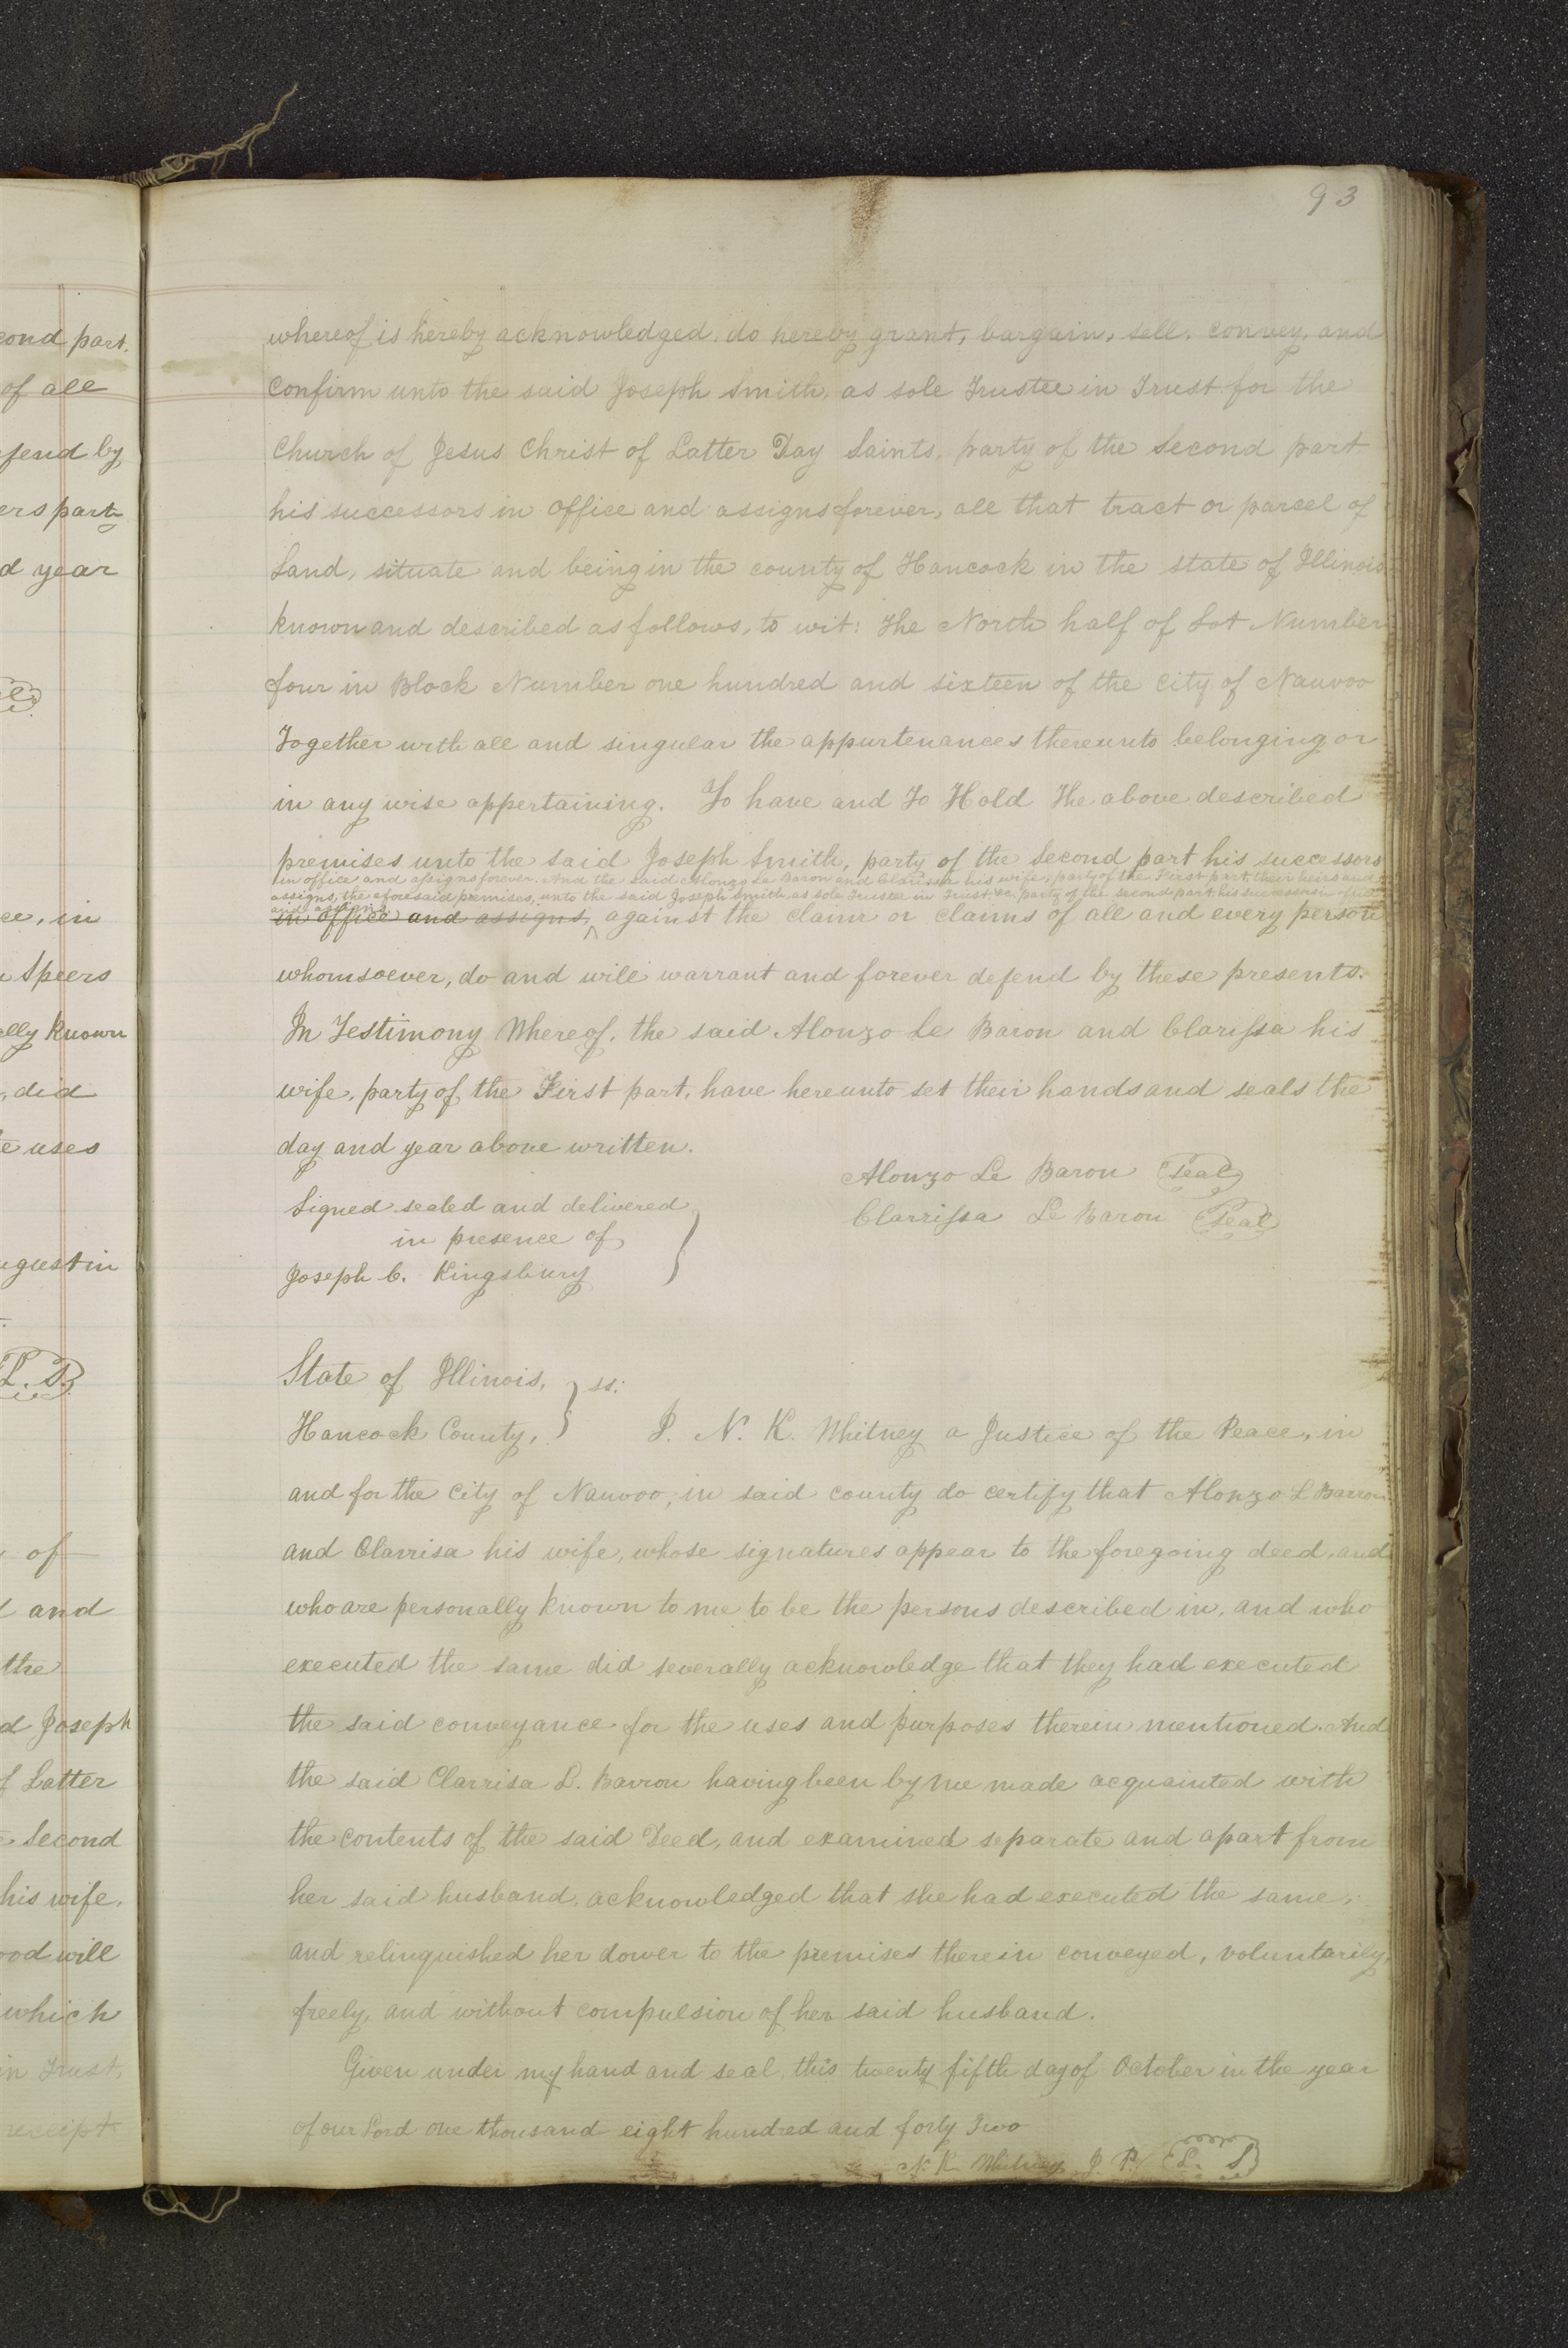 93
cond part.
of all
fend by
ers part
d year
ce, in
Speers
ally known
, did
e uses
ugustin
L. S.
of
and
the
d Joseph
f Latter
Second
his wife,
ood will
which
in Trust,
receipt
whereof is hereby acknowledged, do hereby grant, bargain, sell, convey, and
confirm unto the said Joseph Smith, as sole Trustee in Trust for the
Church of Jesus Christ of Latter Day Saints, party of the Second part
his successors in office and assigns forever, all that tract or parcel of
Land, situate and being in the county of Hancock in the state of Illinois
known and described as follows, to wit: The North half of Lot Number
four in Block Number one hundred and sixteen of the City of Nauvoo
Together with all and singular the appurtenances thereunto belonging or
in any wise appertaining. To have and To Hold The above described
premises unto the said Joseph Smith, party of the Second part his successors
in office and assigns forever. And the said Alonzo Le Baron and Clarissa his wife, party of the First part, their heirs and
assigns, the aforesaid premises, unto the said Joseph Smith, as sole Trustee in Trust, &c, party of the second part, his successors in office
and assigns
in office and assigns, against the claim or claims of all and every person
whomsoever, do and will warrant and forever defend by these presents.
In Testimony Whereof, the said Alonzo Le Baron and Clarissa his
wife, party of the First part, have hereunto set their hands and seals the
day and year above written.
Alonzo Le Baron Seal
Signed sealed and delivered
Clarrissa Le Baron Seal
in presence of
Joseph C. Kingsbury
State of Illinois, } ss:
Hancock County, I. N. K. Whitney a Justice of the Peace, in
and for the City of Nauvoo, in said county do certify that Alonzo L Barron
and Clarrisa his wife, whose signatures appear to the foregoing deed, and
who are personally known to me to be the persons described in, and who
executed the same did severally acknowledge that they had executed
the said conveyance for the uses and purposes therein mentioned. And
the said Clarrisa L. Barron having been by me made acquainted with
the contents of the said Deed, and examined separate and apart from
her said husband, acknowledged that she had executed the same,
and relinquished her dower to the premises therein conveyed, voluntarily,
freely, and without compulsion of her said husband.
Given under my hand and seal, this twenty fifth day of October in the year
of our Lord one thousand eight hundred and forty Two
N. K. Whitney J. P. L. S